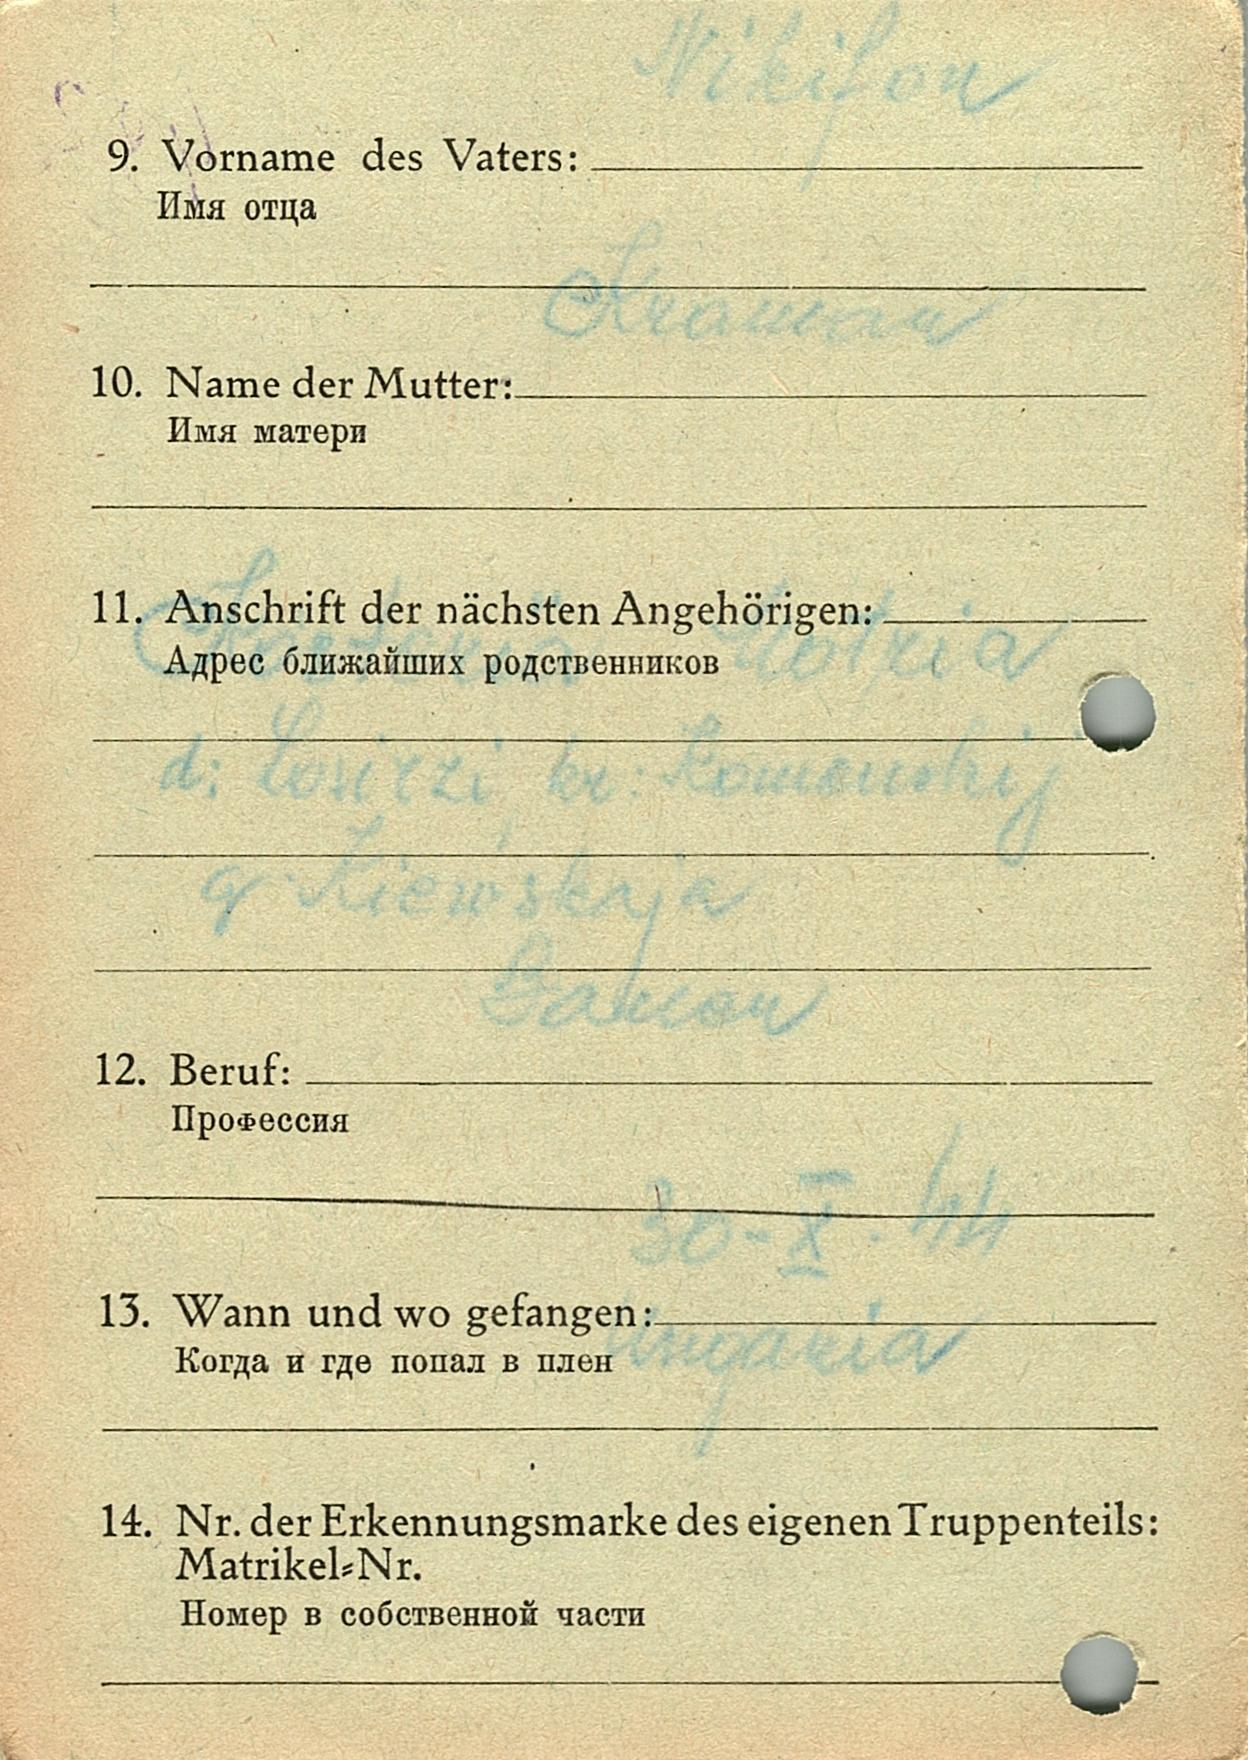 Nikifon
9. Vorname des Vaters:
Имя отца
10. Name der Mutter:
Имя матери
11. Anschrift der nächsten Angehörigen:
Адрес ближайших родственников
d:
q. Kiewskaja
12. Beruf:
Профессия
30-X.44
13. Wann und wo gefangen:
Ungaria
Когда и где попал в плен
14. Nr. der Erkennungsmarke des eigenen Truppenteils:
Matrikel-Nr.
Номер в собственной части